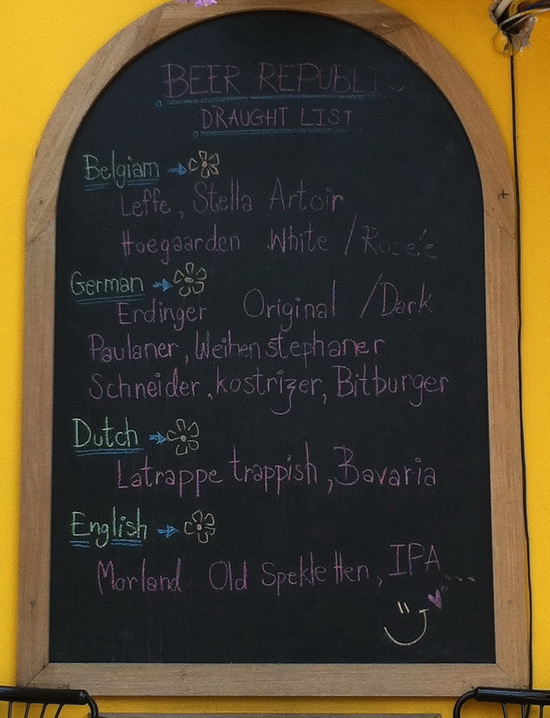 BEER REPUBLIC
DRAUGHT LIST
Belgiam
Leffe, Stella Artoir
Hoegaarden White / Roseé
German
Erdinger Original / Dark
Paulaner, Weihenstephaner
Schneider, kostrizer, Bitburger
Dutch
Latrappe trappish, Bavaria
English
Morland Old Spekletten, IPA ...